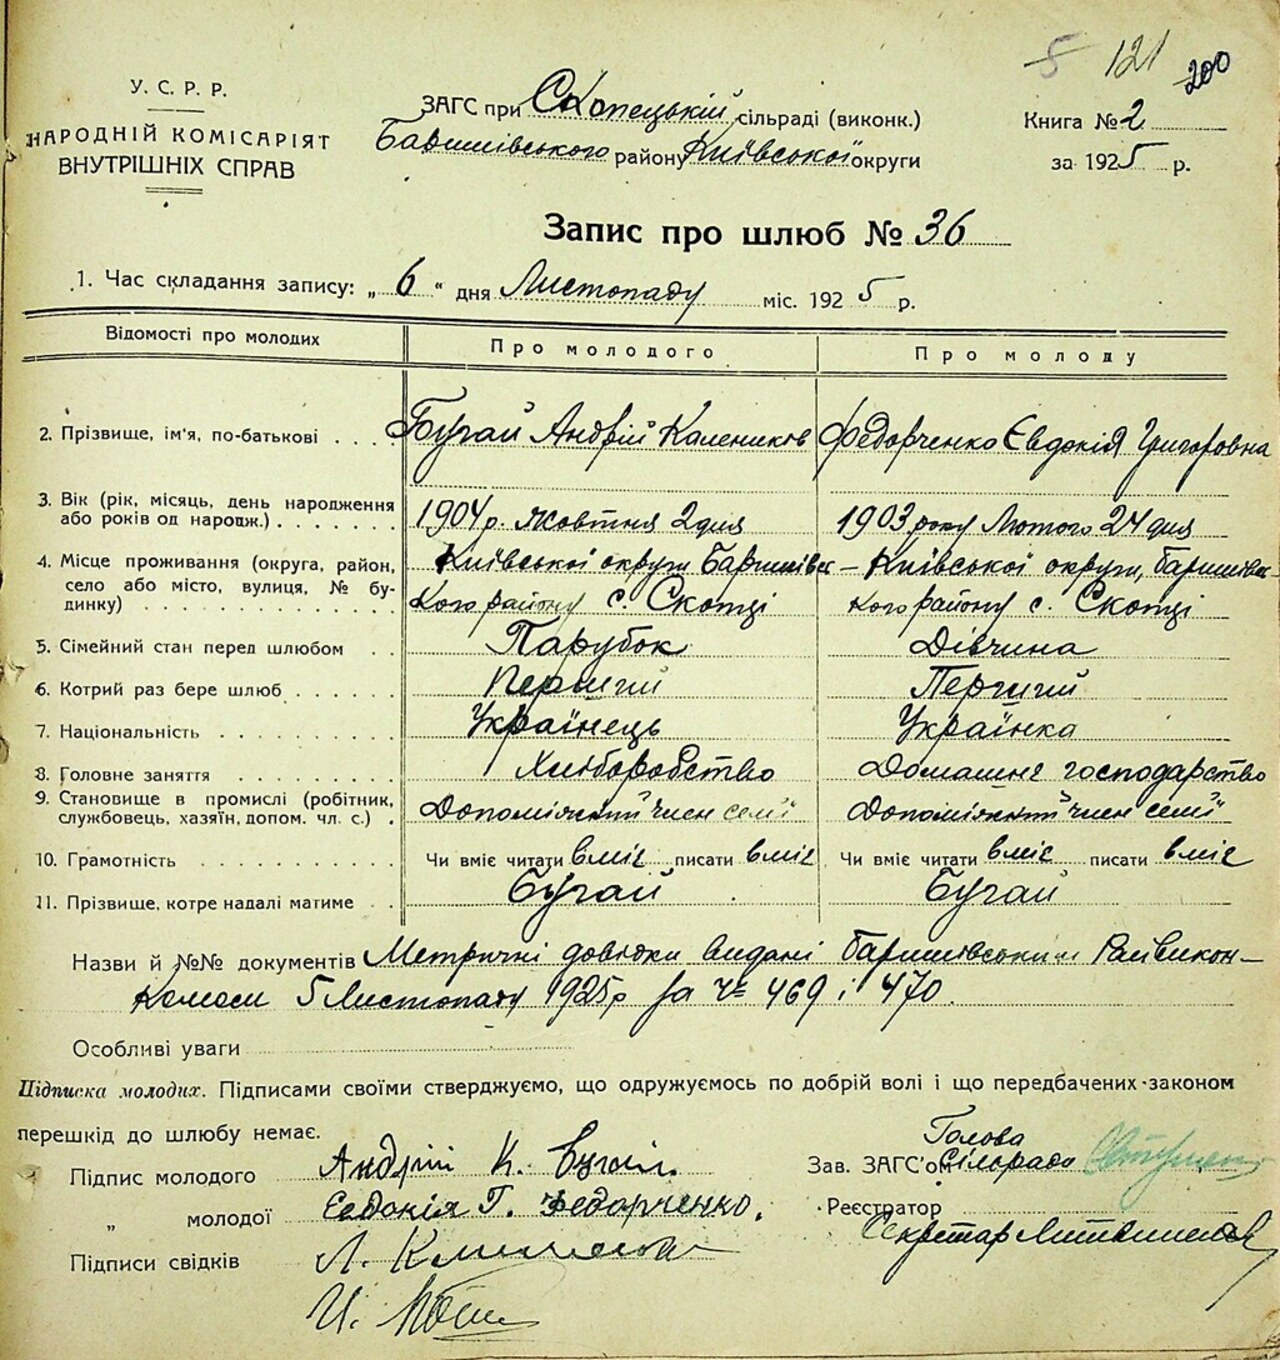 5 121 200
У. С. Р. Р.
НАРОДНІЙ КОМІСАРІЯТ
ВНУТРІШНІХ СПРАВ
ЗАГС при Скопецькій сільраді (виконк.)
Баришівського району Київської округи
Книга № 2
за 1925 р.
Запис про шлюб № 36
1. Час складання запису: „ 6 “ дня Листопаду міс. 1925 р.
Відомості про молодих Про молодого Про молоду
2. Прізвище, ім'я, по-батькові . . . Бугай Андрій Калеников Федорченко Євдокія Григоровна
3. Вік (рік, місяць, день народження
або років од народж.) . . . . . . . 1904 р. Жовтня 2 дня 1903 року Лютого 24 дня
4. Місце проживання (округа, район, Київської округи Баришівсь– Київської округи, баришівсь–
село або місто, вулиця, № бу-
динку) . . . . . . . . . . . . . кого району с. Скопці кого району с. Скопці
5. Сімейний стан перед шлюбом . . Парубок Дівчина
6. Котрий раз бере шлюб . . . . . . Перший Перший
7. Національність . . . . . . . . . Українець Українка
8. Головне заняття . . . . . . . . Хліборобство Домашнє господарство
9. Становище в промислі (робітник,
службовець, хазяїн, допом. чл. с.) . Допоміжний член семї Допоміжний член семї
10. Грамотність . . . . . . . . . . Чи вміє читати вміє писати вміє Чи вміє читати вміє писати вміє
11. Прізвище, котре надалі матиме . . Бугай Бугай
Назви й №№ документів Метричні довідки видані баришівським Райвикон–
комом 5 Листопаду 1925 р за ч= 469 і 470.
Особливі уваги
Підписка молодих. Підписами своїми стверджуємо, що одружуємось по добрій волі і що передбачених законом
перешкід до шлюбу немає.
Підпис молодого Андрій К. Бугай.
„ молодої Євдокія Г. Федорченко.
Підписи свідків Л.
И.
Голова
Зав. ЗАГС'ом Сільради
Реєстратор
Секретар